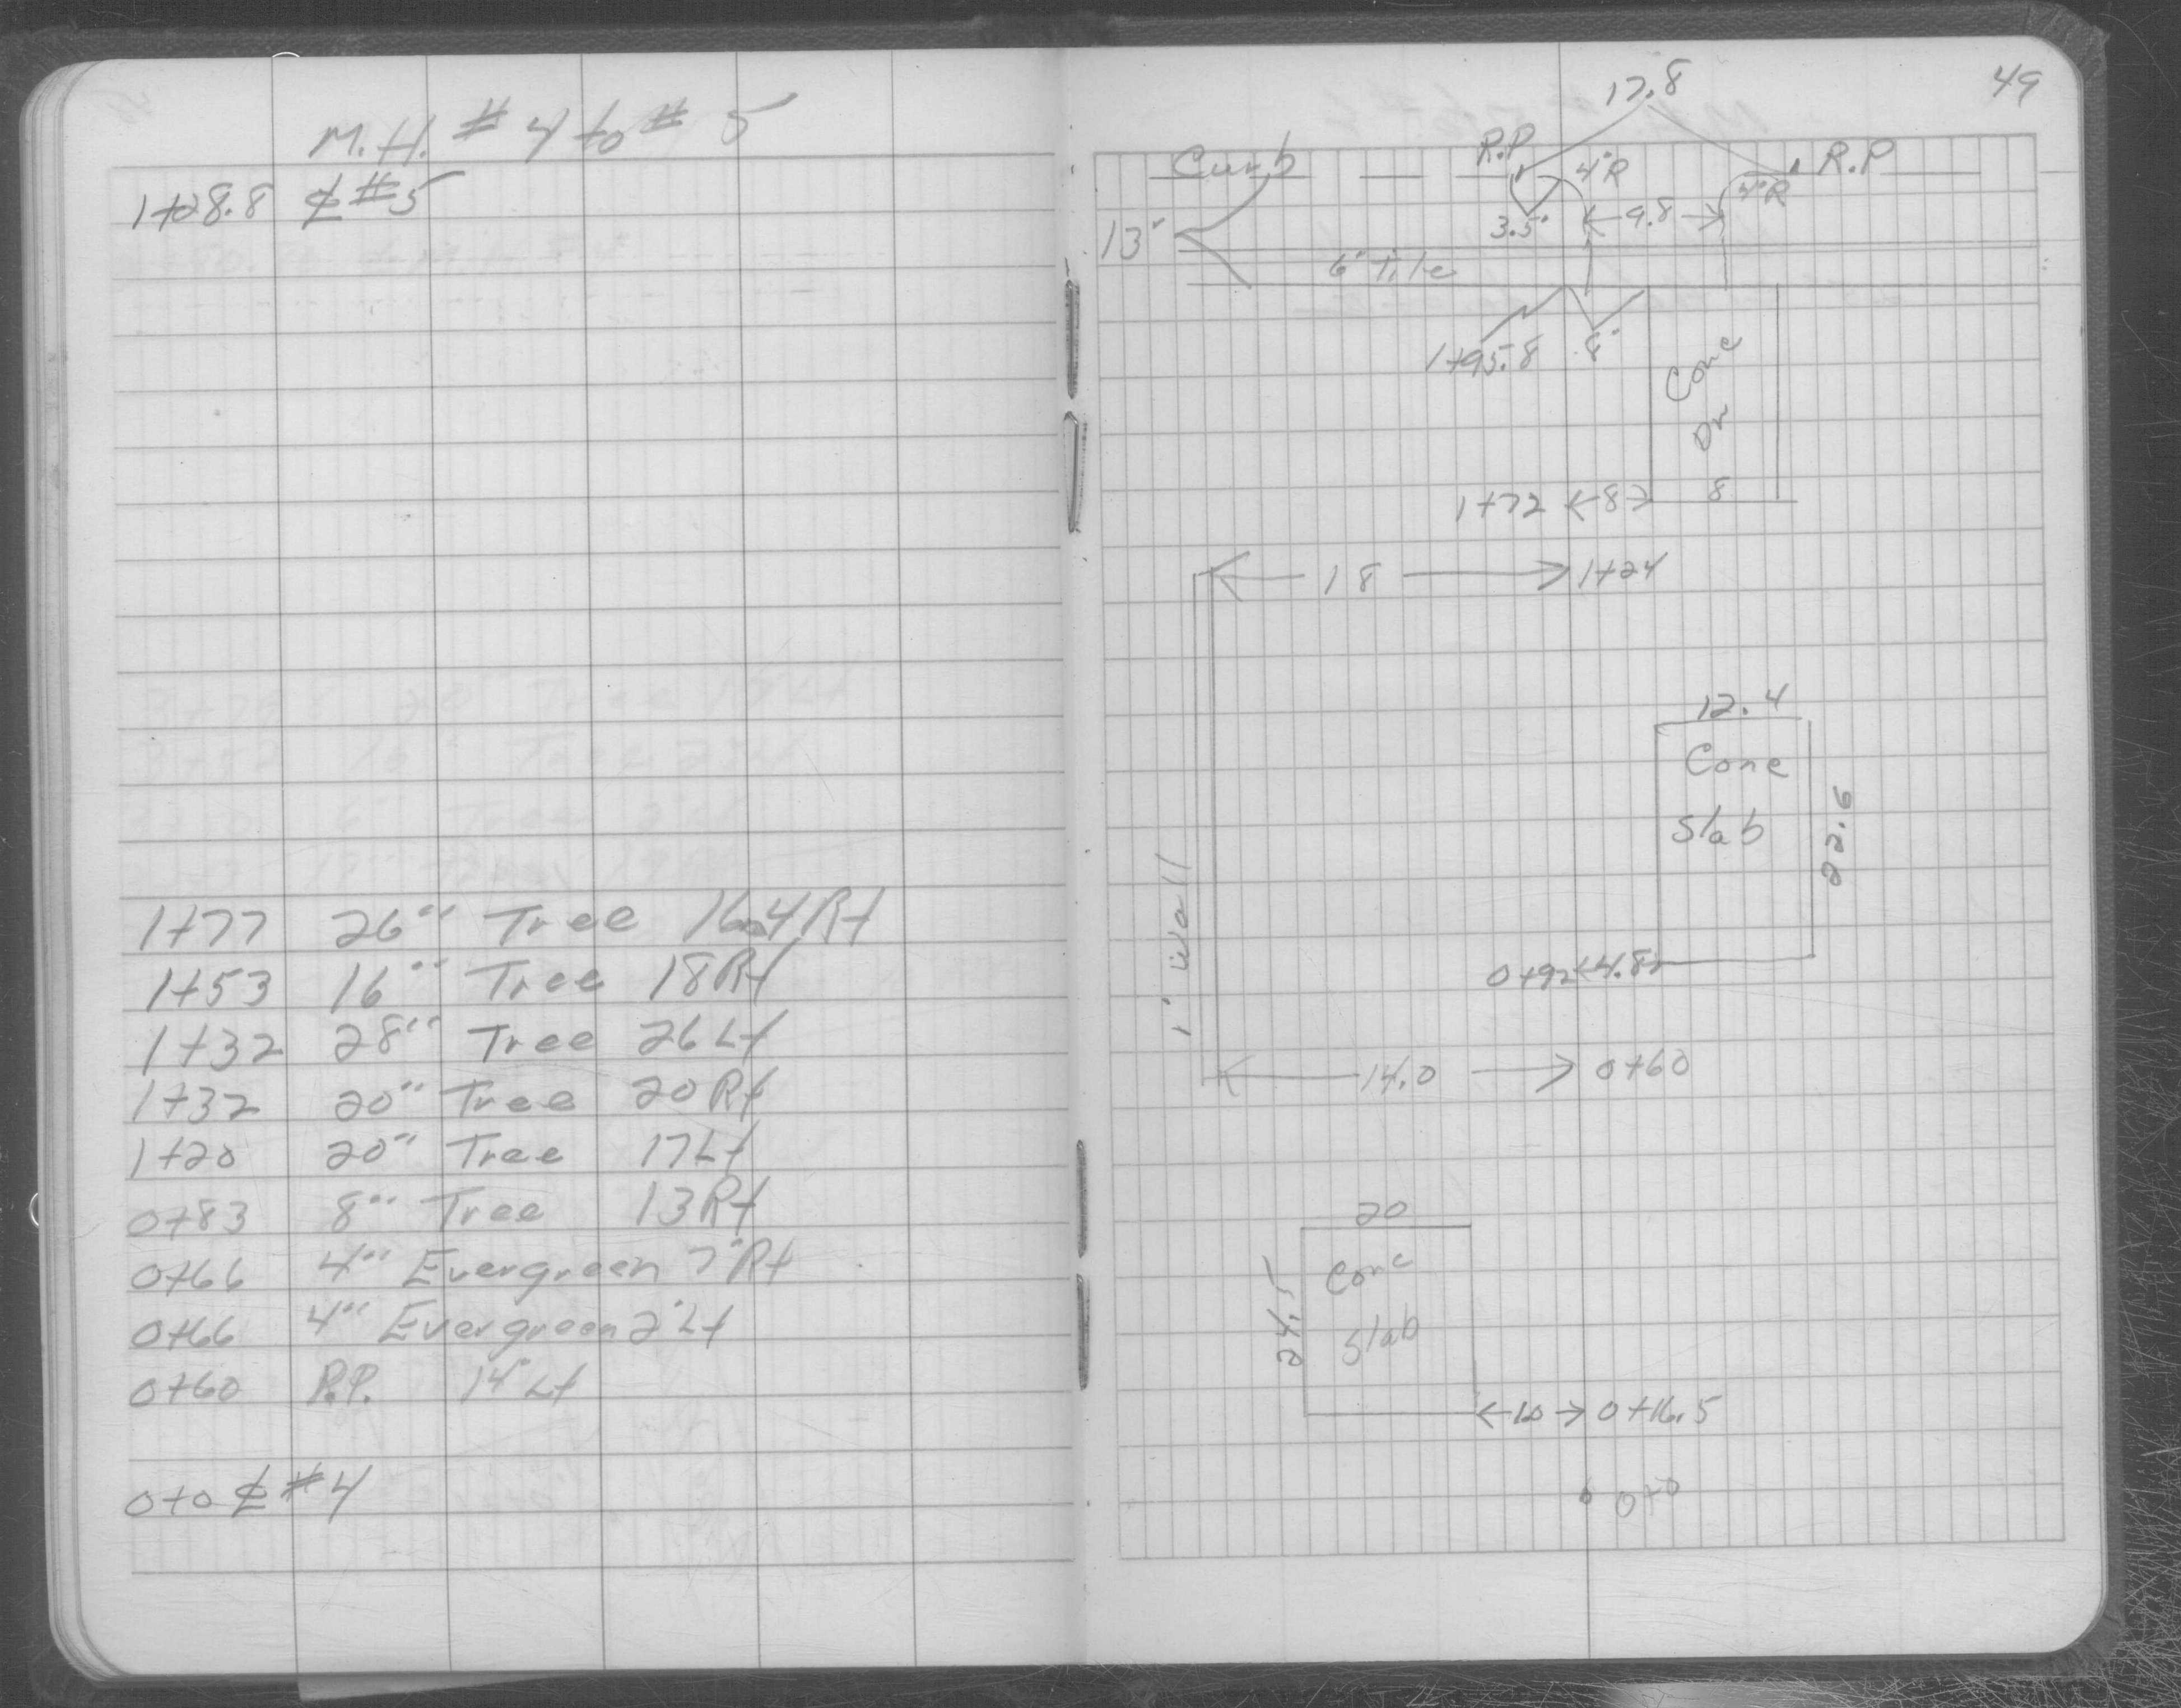 M.H. # 4 to # 5
1+28.8 ℄ #5
1+77 26" Tree 16.4 Rt
1+53 16" Tree 18 Rt
1+32 28" Tree 26 Lt
1+32 20" Tree 20 Rt
1+20 20" Tree 17 Lt
0+83 8" Tree 13 Rt
0+66 4" Evergreen 7' Rt
0+66 4" Evergreen 2' Lt
0+60 P.P. 14' Lt
0+0 ℄ #4
49
17.8
Curb R.P 4'R 4'R R.P
13' 3.5' 9.8
6' tile
1+95.8 8'
Conc
Dr
1+72 8 8
18 1+24
12.4
Conc
Slab
22.6
1' Wall
0+92 4.8
14.0 0+60
20
Conc
Slab
24.5
10 0+16.5
0+0